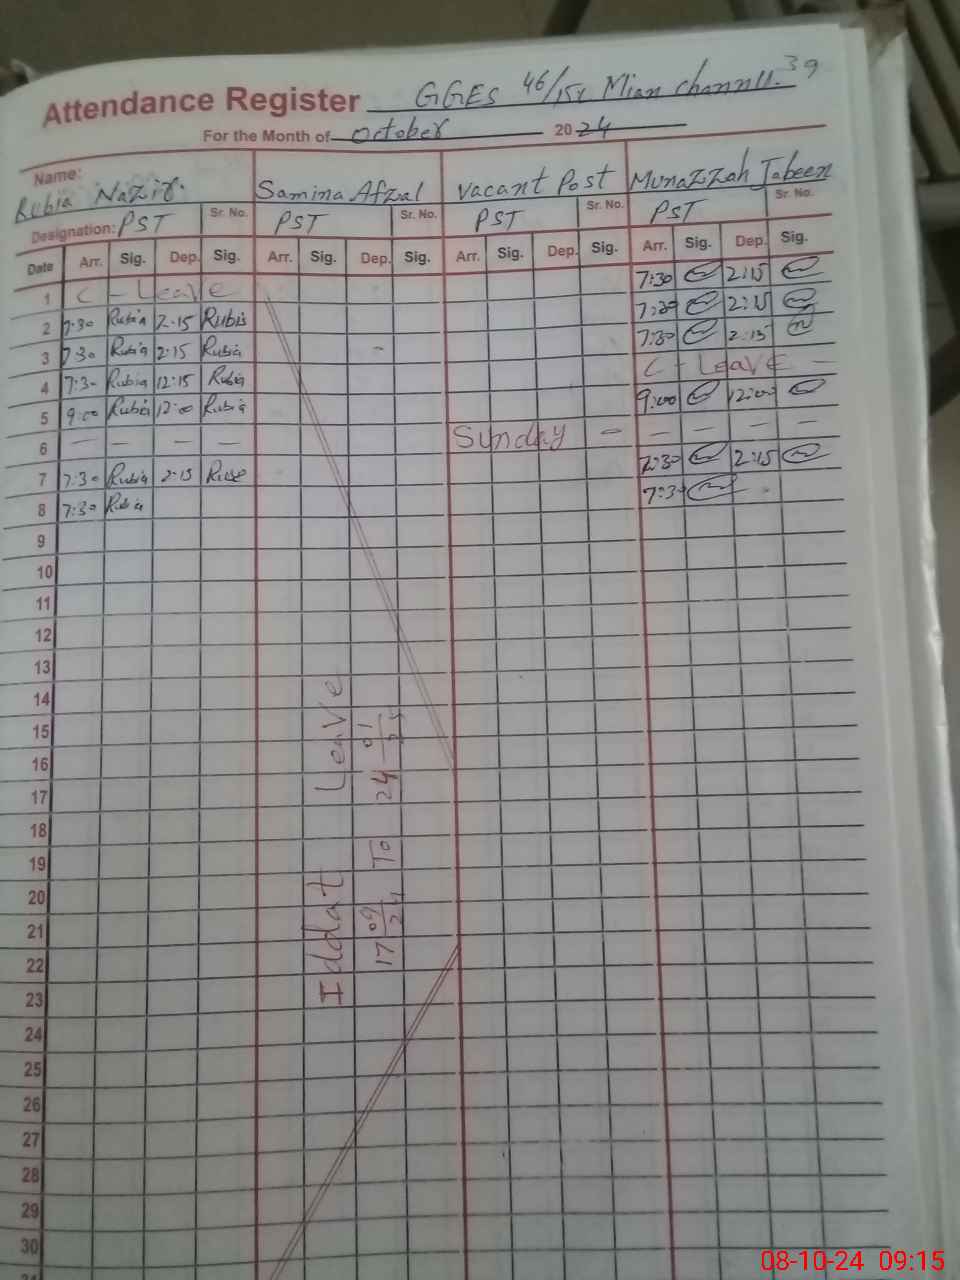 39
Attendance Register GGES 46/15L Mian channu.
For the Month of October 2024
Name: Rubia Nazir. Samina Afzal Vacant Post Munazzah Jabeen
Designation: PST Sr. No. PST Sr. No. PST Sr. No. PST Sr. No.
Date Arr. Sig. Dep. Sig. Arr. Sig. Dep. Sig. Arr. Sig. Dep. Sig. Arr. Sig. Dep. Sig.
1 C - Leave 7:30 2:15
2 7:30 Rubia 2:15 Rubia 7:30 2:15
3 7:30 Rubia 2:15 Rubia 7:30 2:15
4 7:30 Rubia 12:15 Rubia C - Leave -
5 9:00 Rubia 12:00 Rubia 9:00 12:00
6 - - - - Sunday - - - - -
7 7:30 Rubia 2:15 7:30 2:15
8 7:30 Rubia 7:30
9
10
11
12
13
14
15
16
17
18
19
20
21
22
23
24
25
26
27
28
29
30
Iddat Leave
17 09/24 To 24 01/25
08-10-24 09:15